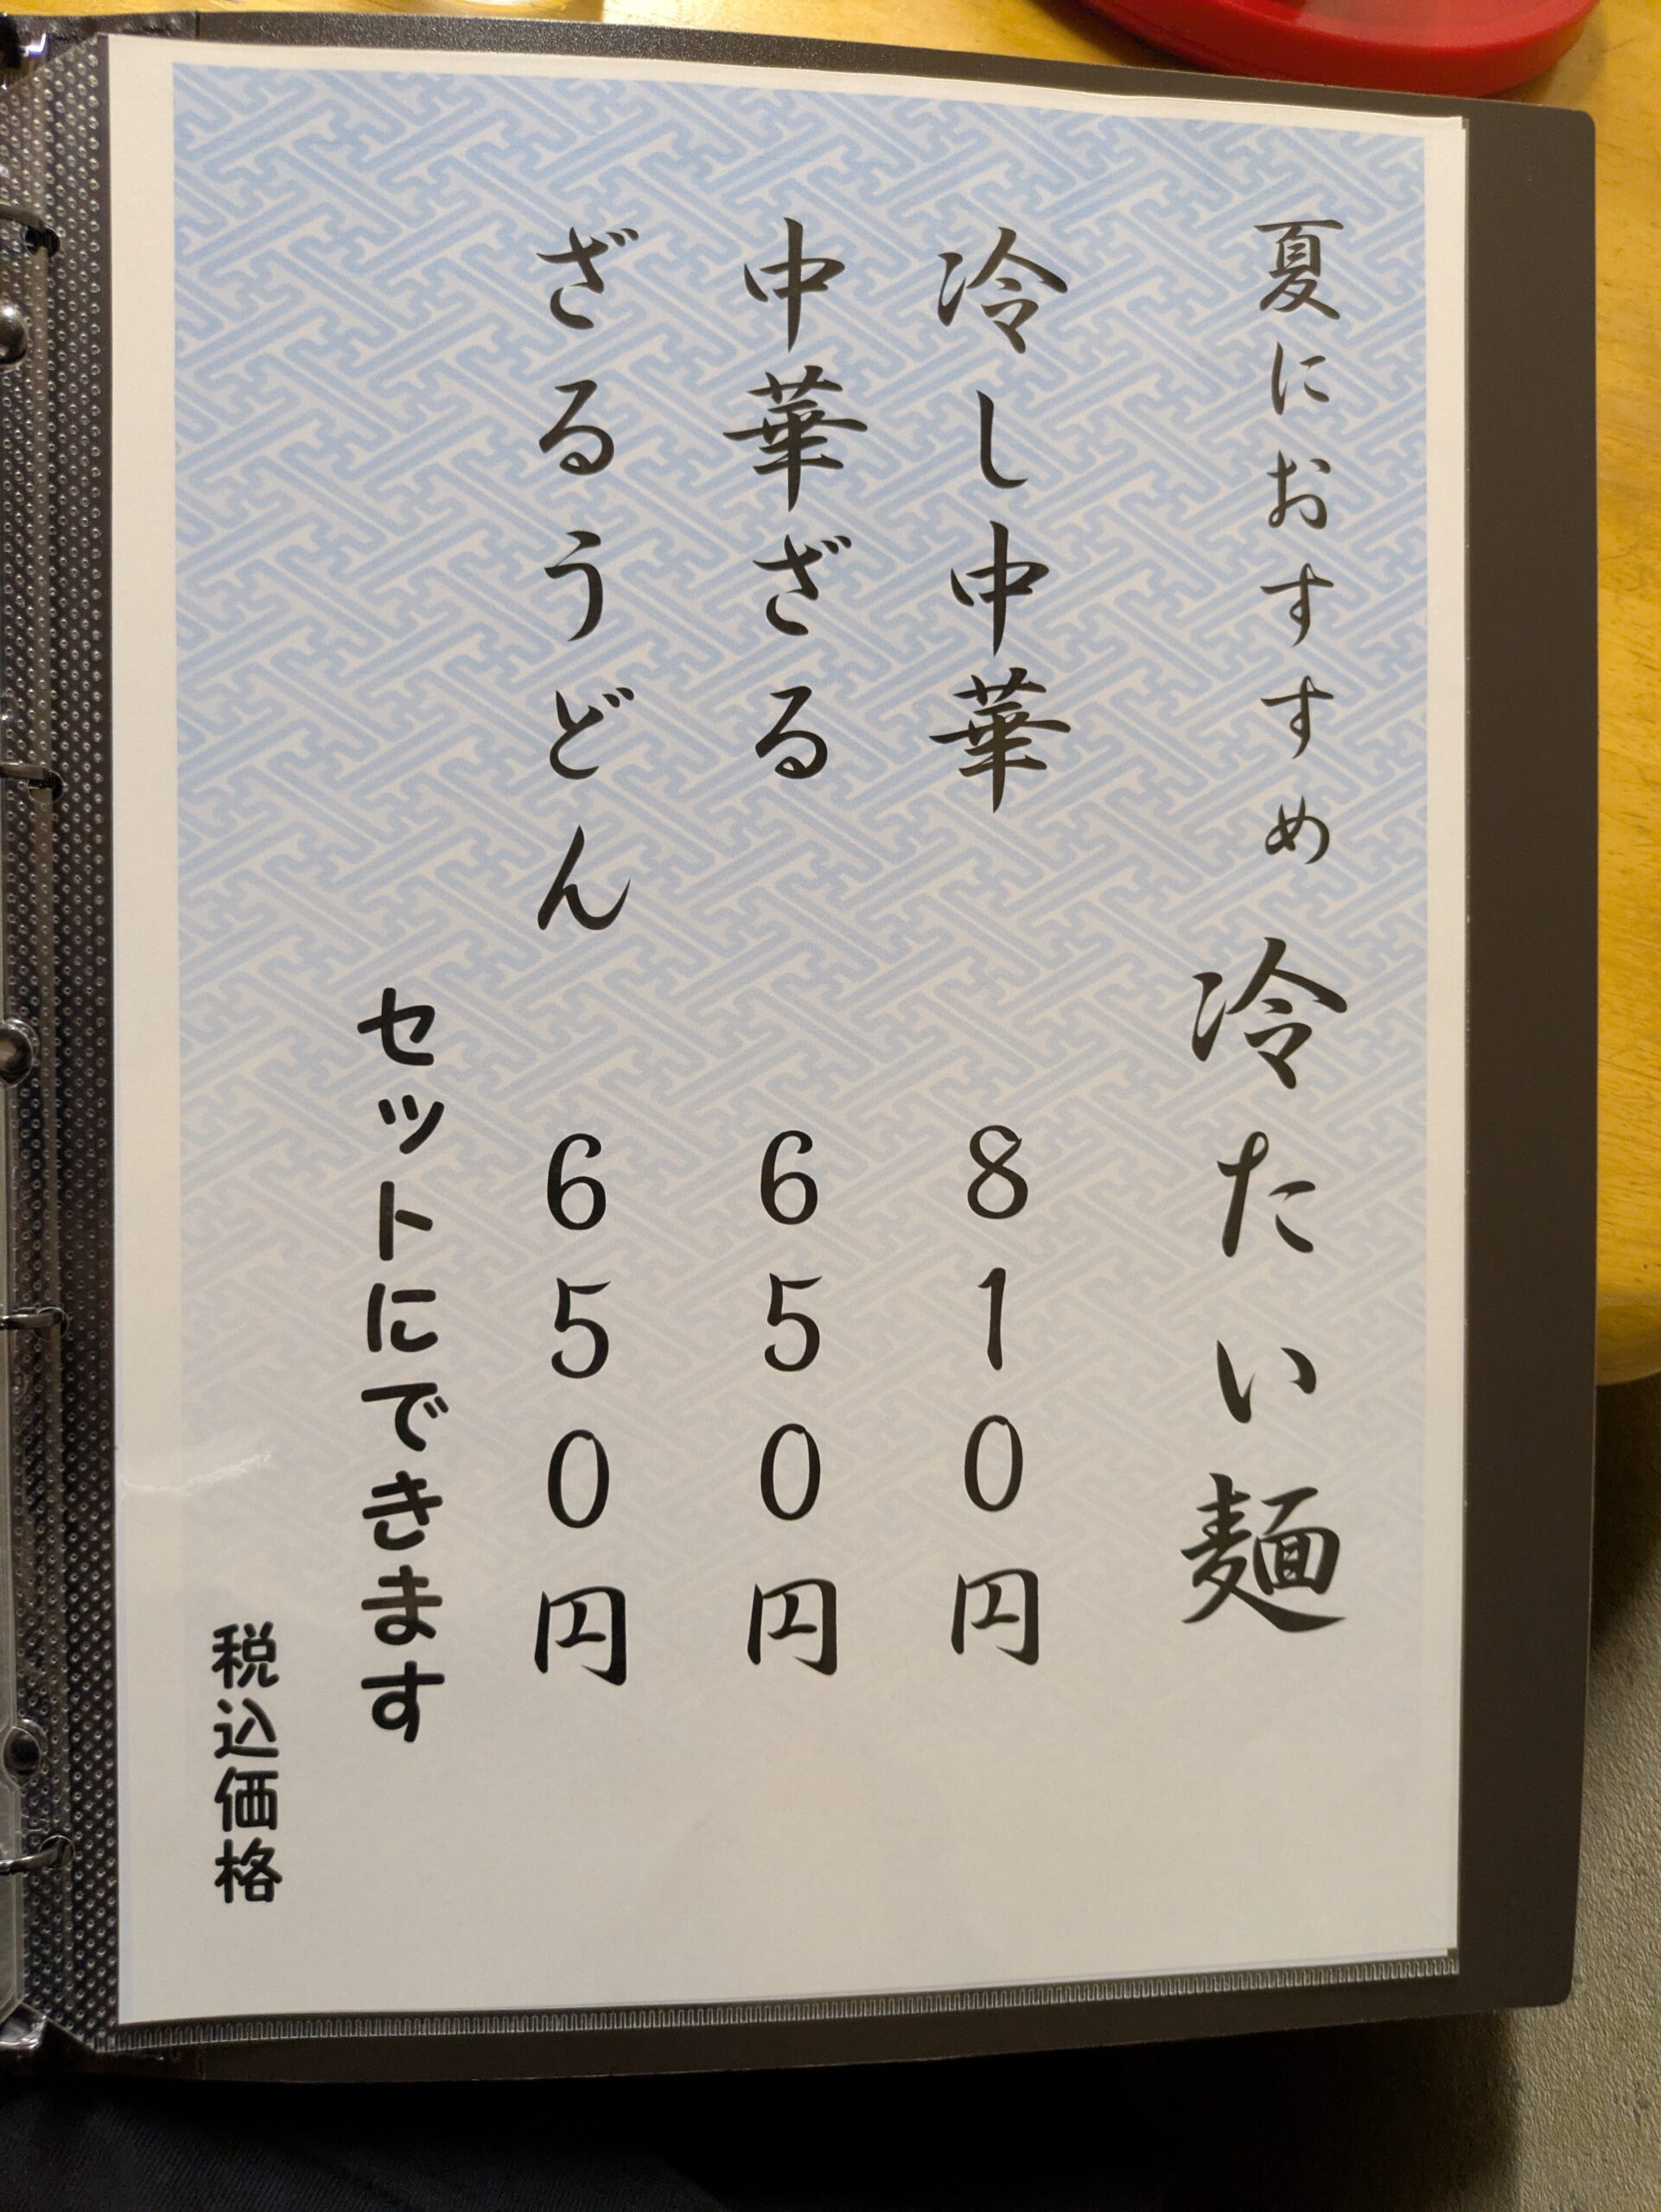 夏におすすめ 冷たい麺
冷し中華 810円
中華ざる 650円
ざるうどん 650円
セットにできます
税込価格